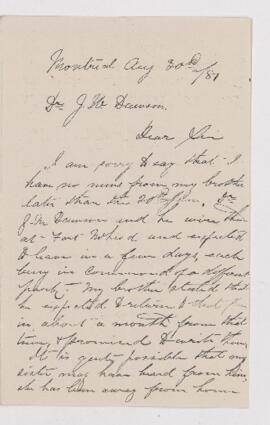 Montreal Aug 30th/81
Dr J. W Dawson.
Dear Sir
I am sorry to say that I
have no news from my brother
later than the 20th
J. M Dawson and he were then
at Fort and expected
to leave in a few days, each
being in command of a different
party. My brother stated that
he expected to return to that
in about a month from that
time, & promised to write then.
It is quite possible that my
sister may have heard from him,
she has been away from home